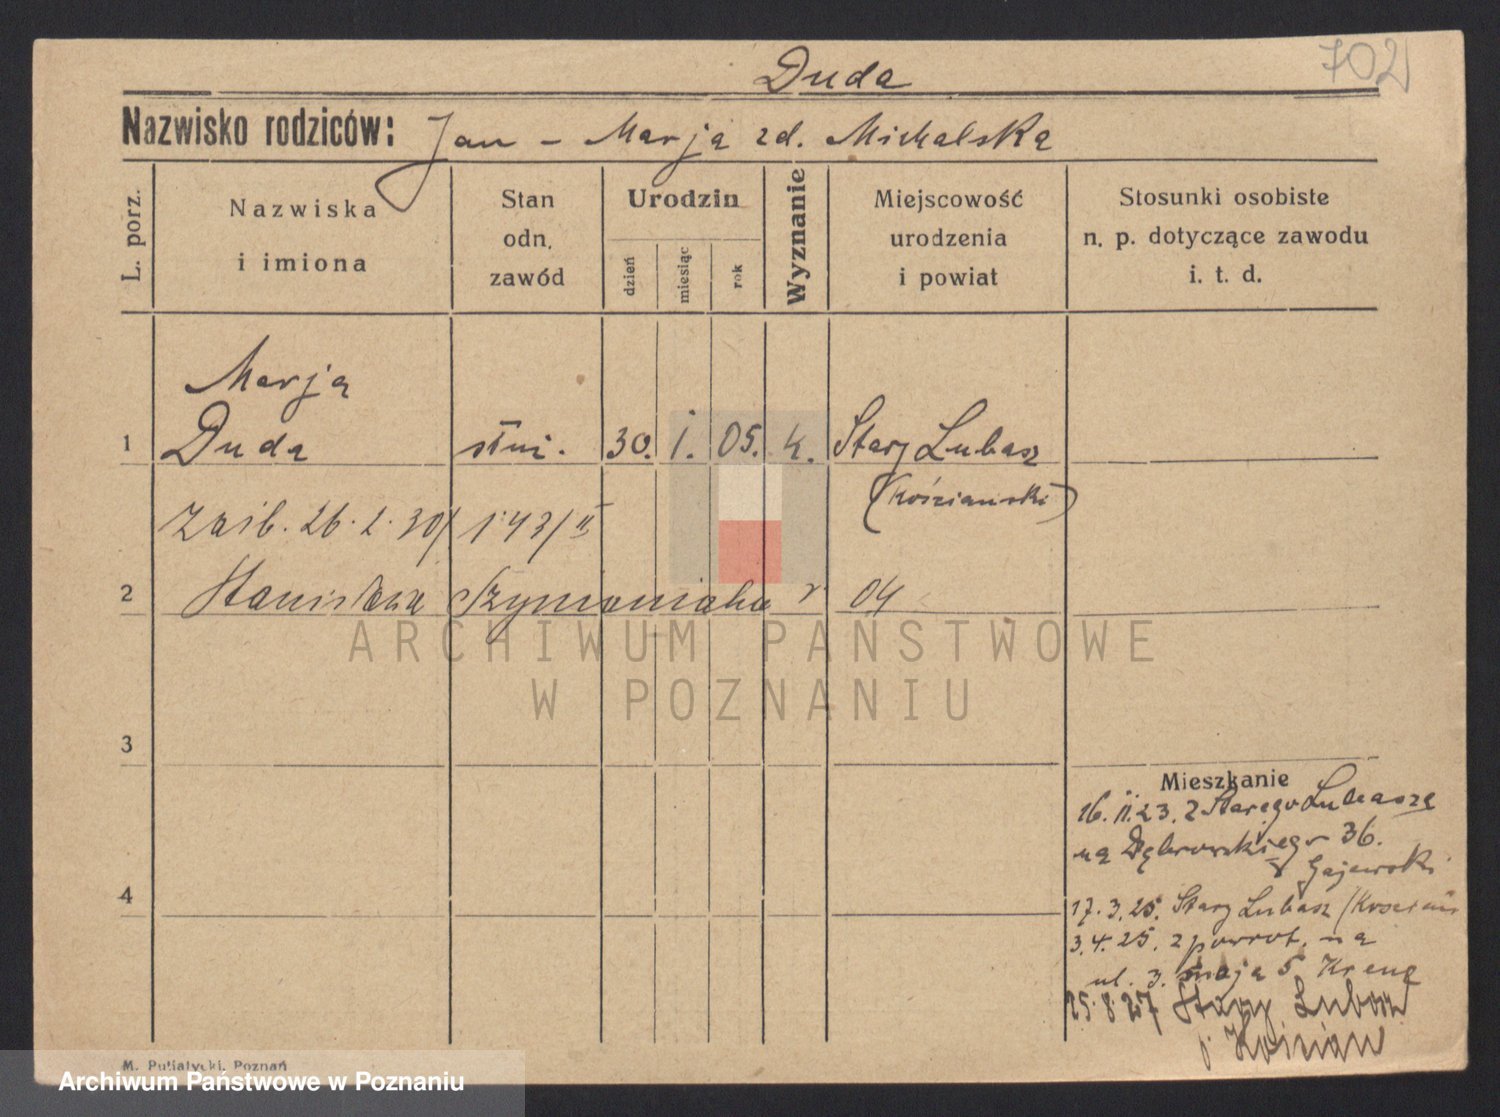 702
Duda
Nazwisko rodziców: Jan - Marja zd. Michalska
L. porz.
Nazwiska i imiona
Stan odn. zawód
Urodzin
dzień
miesiąc
rok
Wyznanie
Miejscowość urodzenia i powiat
Stosunki osobiste n. p. dotyczące zawodu i. t. d.
Marja
1 Duda służ. 30. I. 05. k. Stary Lubosz
(Kościański)
26. 2. 30/ 143/II
2 Stanisława 04
ARCHIWUM PAŃSTWOWE
W POZNANIU
3
Mieszkanie
16. II. 23. z Starego Lubosza
na Dąbrowskiego 36.
Gajewski
4
17. 3. 25. Stary Lubosz
3. 4. 25. z powrot. na
ul. 3. maja 5
25. 8. 27 Stary Lubosz
p. Kościan
M. Putiatycki, Poznań
Archiwum Państwowe w Poznaniu